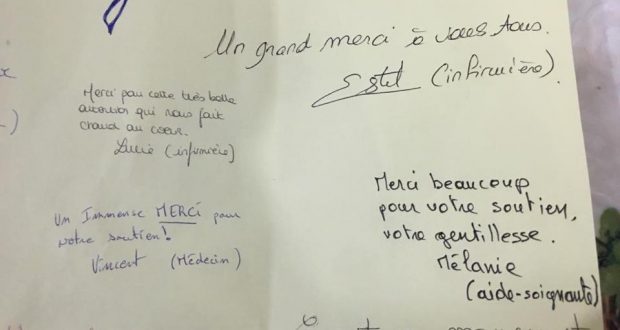 Un grand merci à vous tous.
Estel (infirmière).
Merci pour cette très belle
attention qui nous fait
chaud au coeur.
Lucie (infirmière)
Un Immense MERCI pour
votre soutien!
Vincent (Médecin)
Merci beaucoup
pour votre soutien,
votre gentillesse.
Mélanie
(aide-soignante)